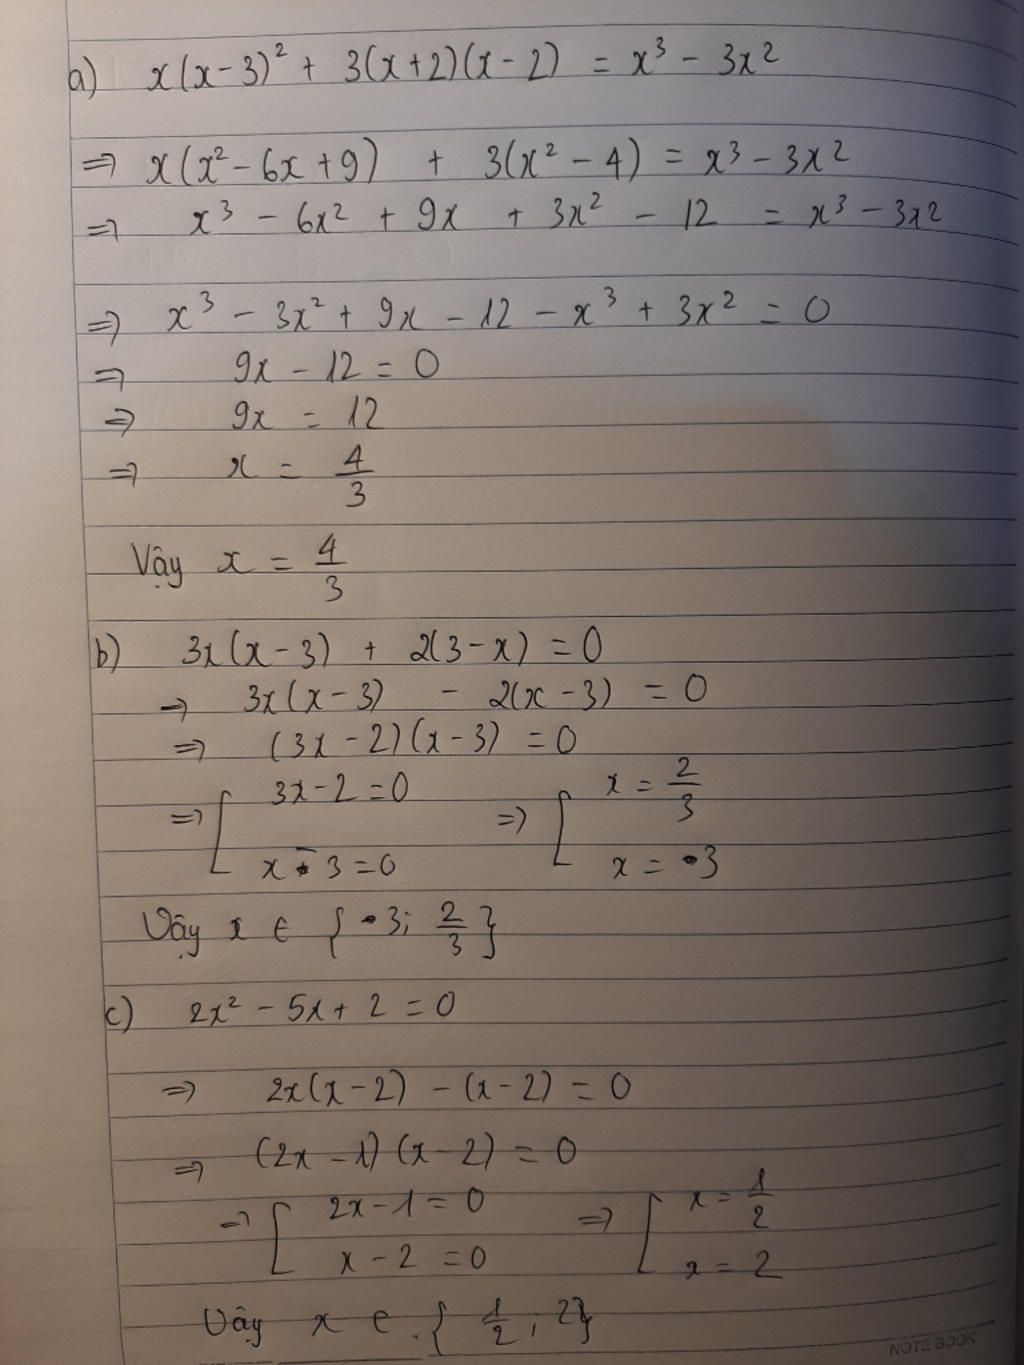 a) x(x-3)² + 3(x+2)(x-2) = x³ - 3x²
=> x(x² - 6x + 9) + 3(x² - 4) = x³ - 3x²
=> x³ - 6x² + 9x + 3x² - 12 = x³ - 3x²
=> x³ - 3x² + 9x - 12 - x³ + 3x² = 0
=> 9x - 12 = 0
=> 9x = 12
=> x = 4/3
Vậy x = 4/3
b) 3x(x-3) + 2(3-x) = 0
=> 3x(x-3) - 2(x-3) = 0
=> (3x-2)(x-3) = 0
=> [ 3x-2 = 0 => [ x = 2/3
x - 3 = 0 x = 3
Vậy x ∈ { 3; 2/3 }
c) 2x² - 5x + 2 = 0
=> 2x(x-2) - (x-2) = 0
=> (2x-1)(x-2) = 0
=> [ 2x-1 = 0 => [ x = 1/2
x - 2 = 0 x = 2
Vậy x ∈ { 1/2 ; 2}
NOTE BOOK